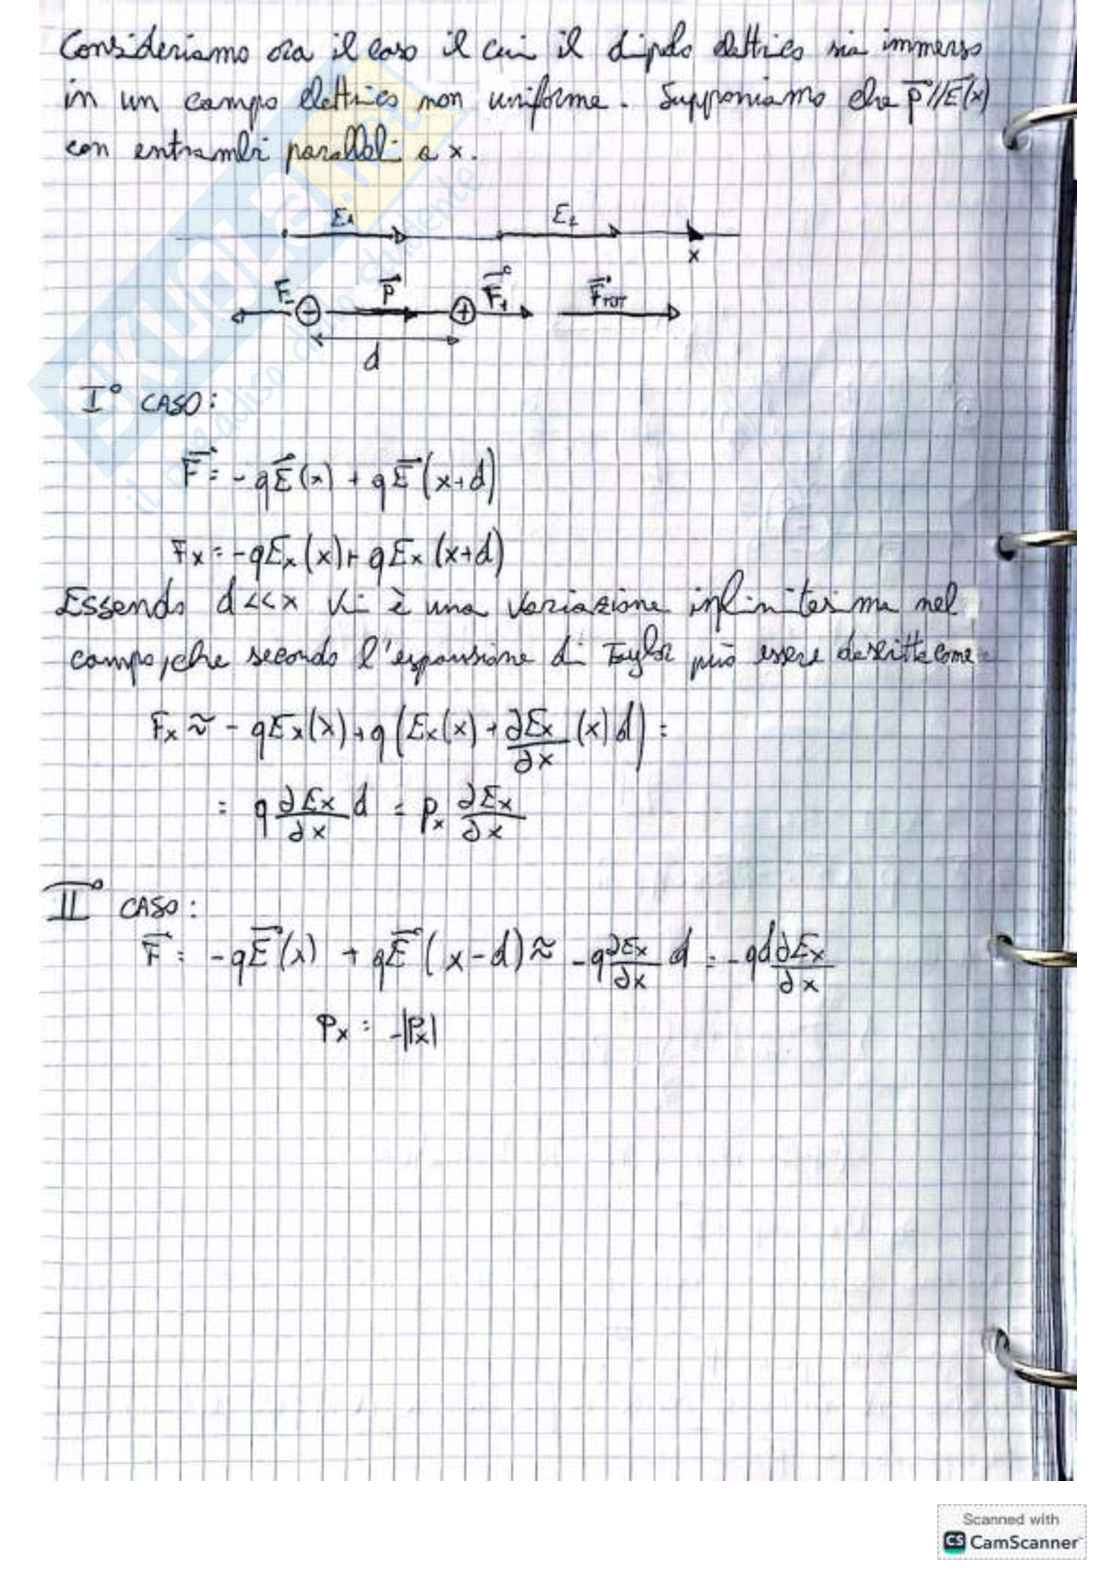 Consideriamo ora il caso il cui il dipolo elettrico sia immerso
in un campo elettrico non uniforme. Supponiamo che p⃗//E⃗(x)
con entrambi paralleli a x.
E₁ E₂
x
F₋ − p⃗ + F⃗₊ F⃗TOT
d
I° CASO:
F⃗ = -qE⃗(x) + qE⃗(x+d)
Fx = -qEx(x)+ qEx(x+d)
Essendo d<<x vi è una variazione infinitesima nel
campo, che secondo l'espansione di Taylor può essere descritta come
Fx ≈ - qEx(x)+q(Ex(x) + ∂Ex/∂x (x)d) =
= q ∂Ex/∂x d = px ∂Ex/∂x
II° CASO:
F⃗ = -qE⃗(x) + qE⃗(x-d) ≈ -q ∂Ex/∂x d = -qd ∂Ex/∂x
Px = -|Px|
SKUOLA.net
il paradiso dello studente
Scanned with
CS CamScanner